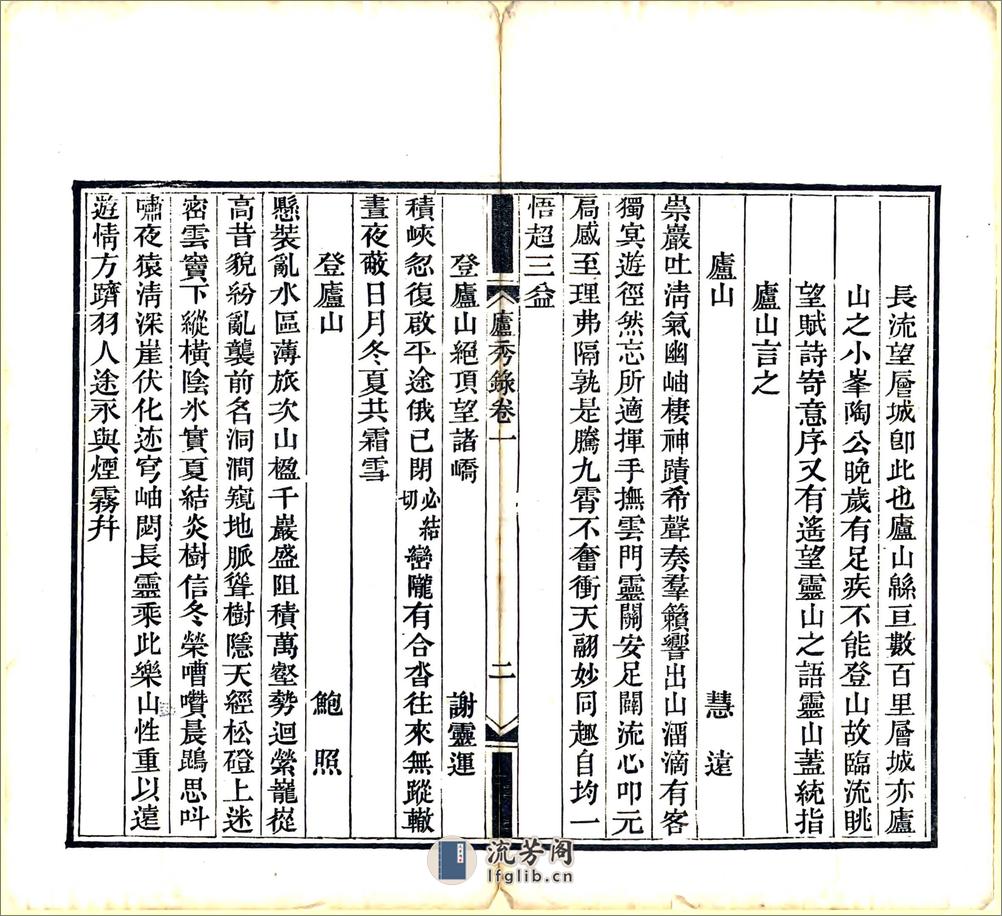 長流望層城卽此也廬山緜亘數百里層城亦廬
山之小峯陶公晚歲有足疾不能登山故臨流眺
望賦詩寄意序又有遙望靈山之語靈山蓋統指
廬山言之
廬山 慧遠
崇巖吐淸氣幽岫棲神蹟希聲奏羣籟響出山溜滴有客
獨㝠遊徑然忘所適揮手撫雲門靈關安足闢流心叩元
扃感至理弗隔孰是騰九霄不奮衝天翮妙同趣自均一
悟超三益
廬秀錄卷一 二
登廬山絕頂望諸嶠 謝靈運
積峽忽復啟平途俄已閉必結切巒隴有合沓往來無蹤轍
晝夜蔽日月冬夏共霜雪
登廬山 鮑照
懸裝亂水區薄旅次山楹千巖盛阻積萬壑勢迴縈巃嵸
高昔貌紛亂襲前名洞澗窺地脈聳樹隱天經松磴上迷
密雲竇下縱橫陰氷實夏結炎樹信冬榮嘈囋晨鵾思叫
嘯夜猿淸深崖伏化迹穹岫閟長靈乘此樂山性重以遠
遊情方躋羽人途永與煙霧幷
流芳阁
lfglib.cn